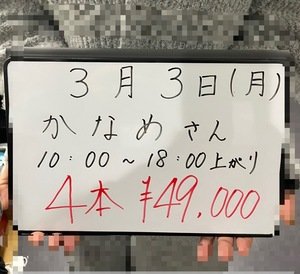 3月3日(月)
かなめさん
10:00～18:00上がり
4本 ¥49,000